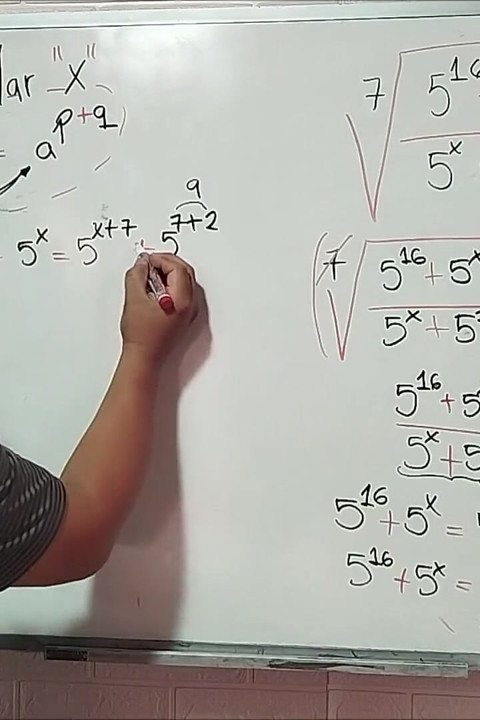 "X"
a^{p+q}
9
5^x = 5^{x+7} + 5^{7+2}
7√ 5^{16}
5^x
7√ 5^{16} + 5^x
5^x + 5
5^{16} + 5
5^x + 5
5^{16} + 5^x =
5^{16} + 5^x =